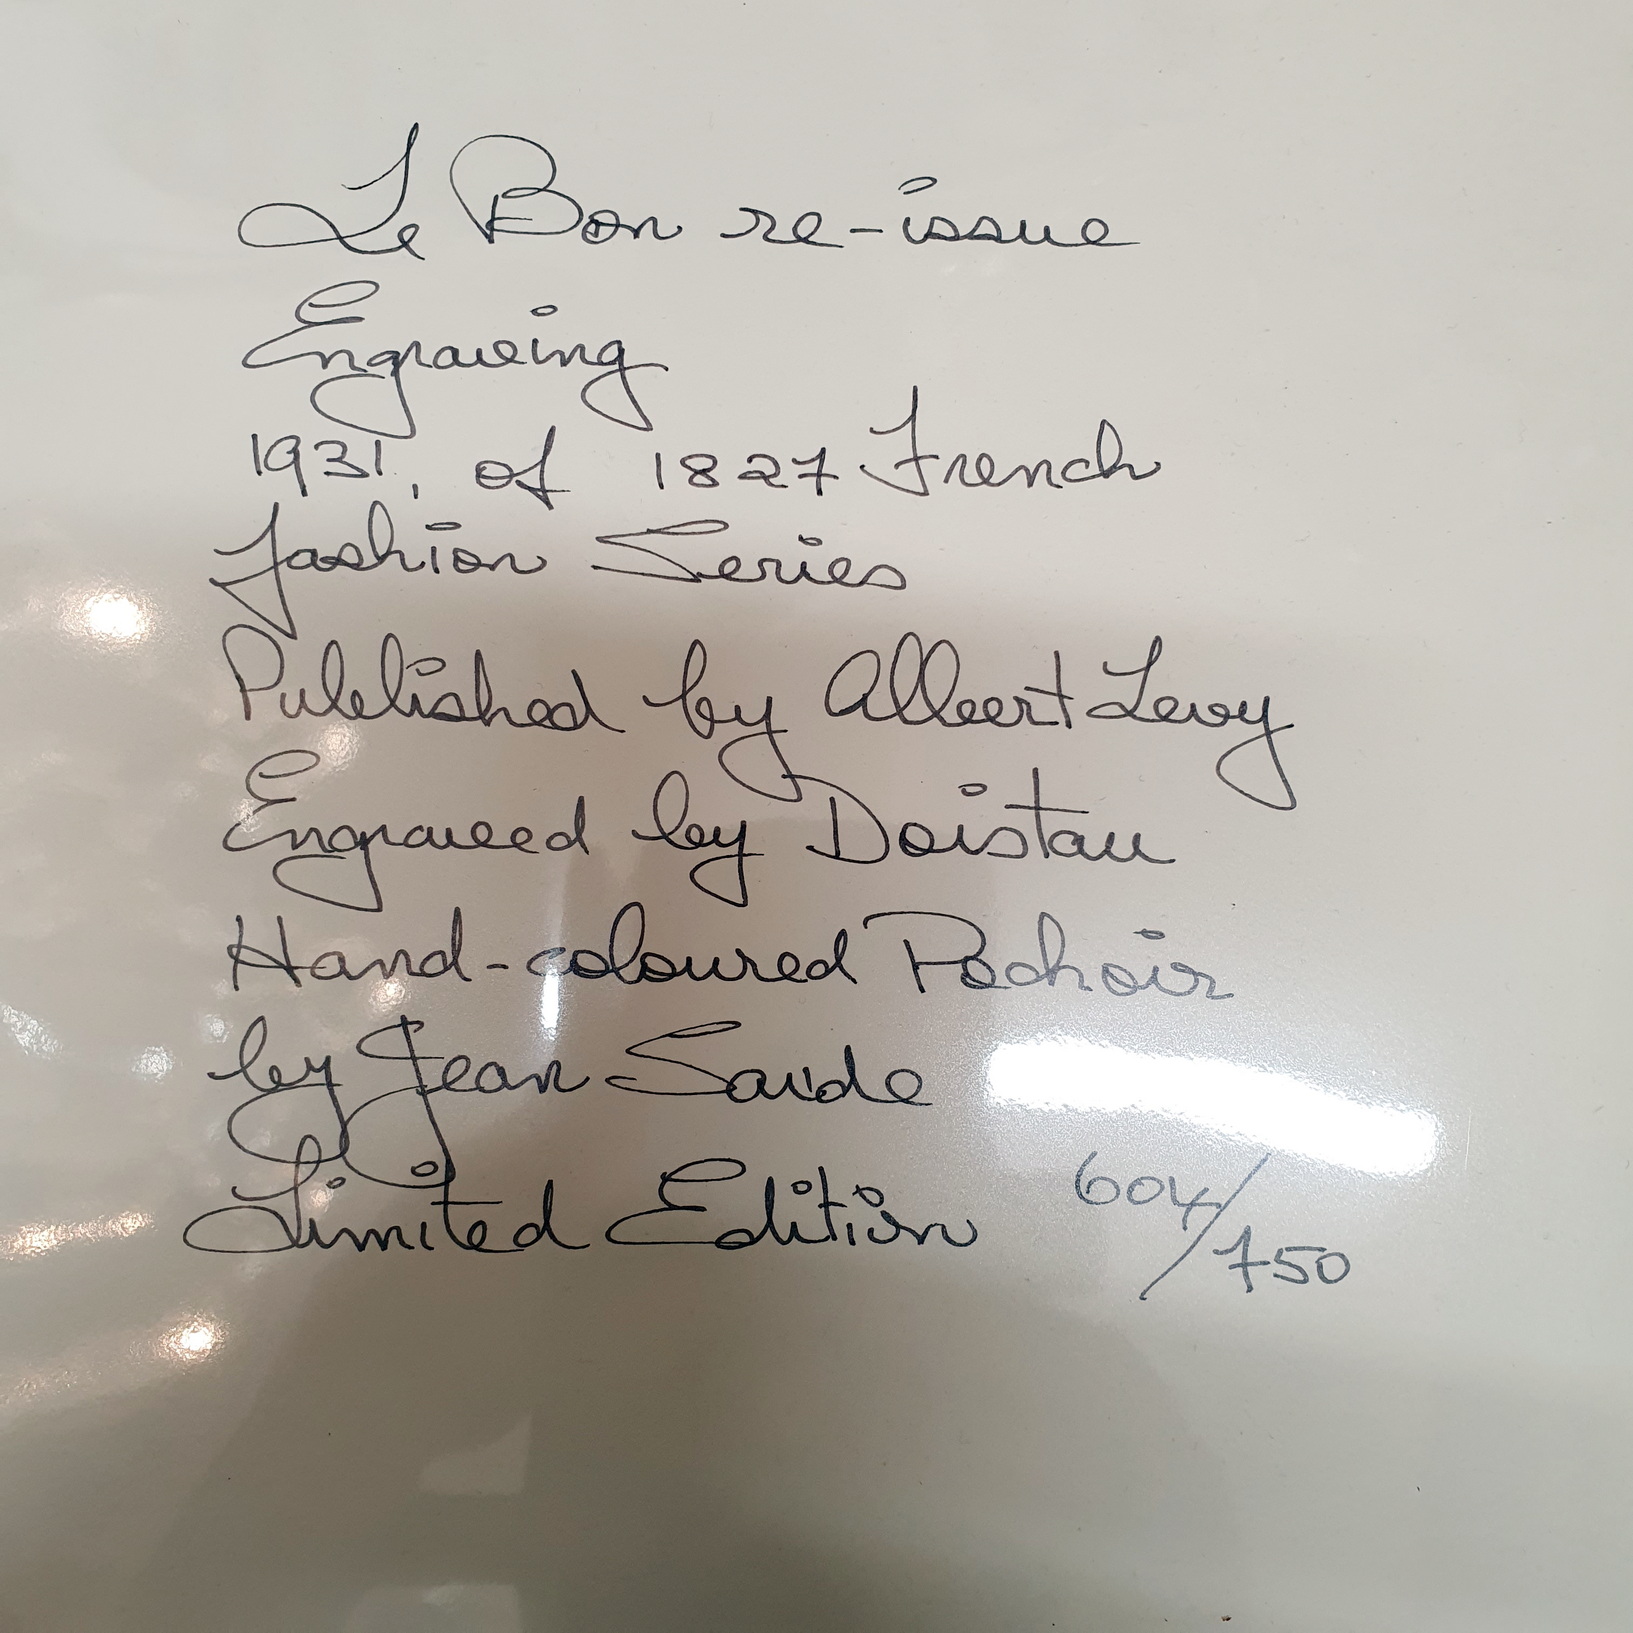 Le Bon re-issue
Engraving
1931, of 1827 French
Fashion Series
Published by Albert Levy
Engraved by Doistau
Hand-coloured Pochoir
by Jean Saude
Limited Edition 604/750